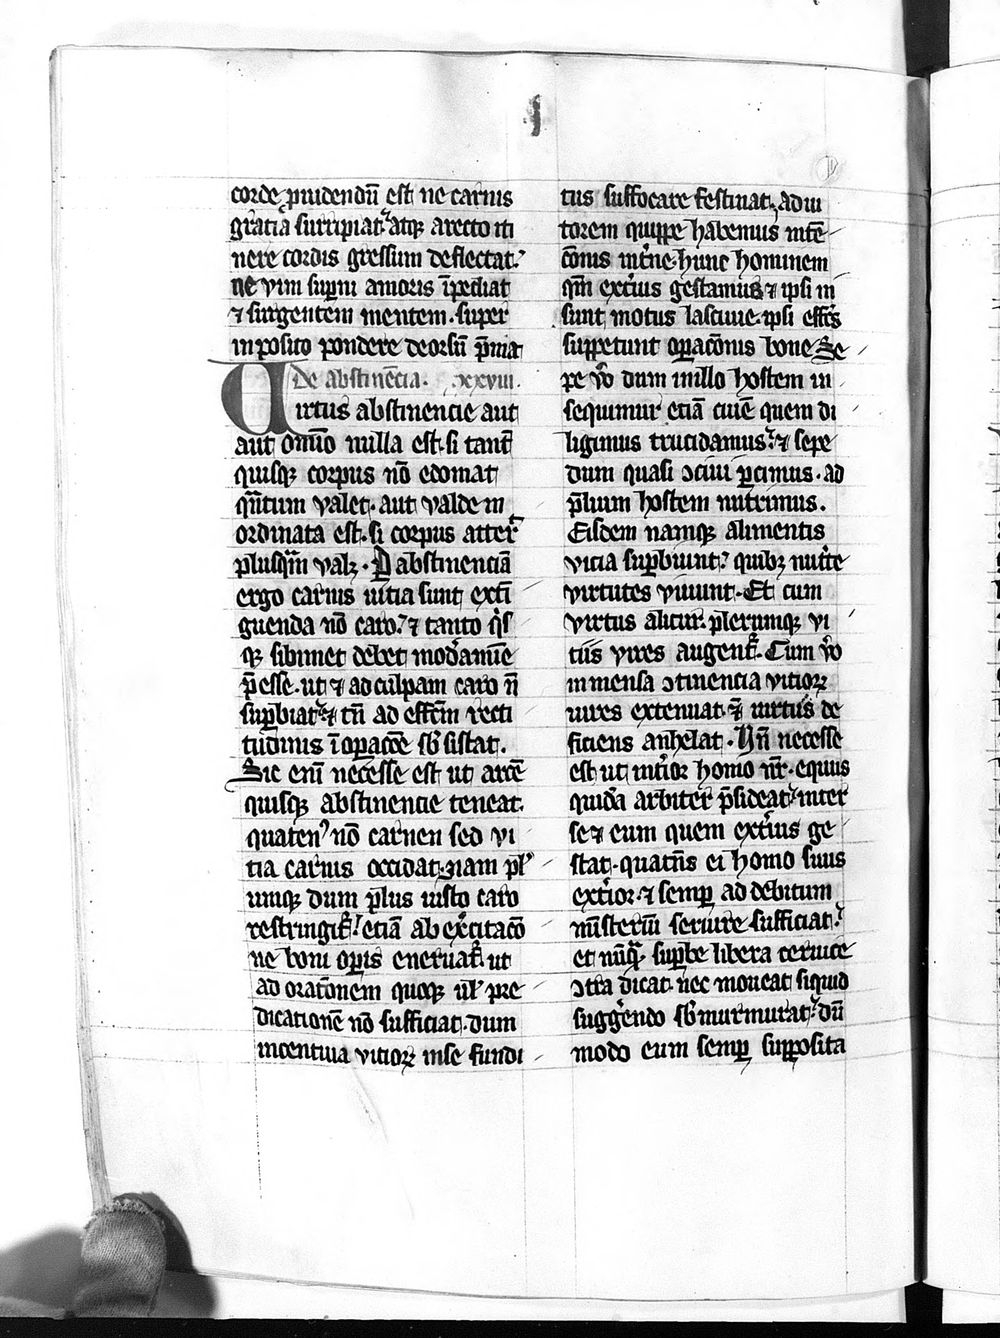 corde prudendū est ne carnis
gratia surripiat. atq̄ arecto iti
nere cordis gressum deflectat.
ne vim supn̄i amoris īpediat
⁊ surgentem mentem. super
inposito pondere deorsū p̄mat
De abstinēcia. xxviii.
Virtus abstinencie aut
aut om̄io nulla est. si tant̄
quisq̄ corpus nō edomat
qn̄tum valet. aut valde in
ordinata est. si corpus atter̄
plusq̄m valꝫ. P abstinenciā
ergo carnis uitia sunt exti
guenda nō caro. ⁊ tanto q̄s
q̄ sibimet debet modāmīe
p̄esse. ut ⁊ ad culpam caro n̄
supbiat. ⁊ tn̄ ad effēm recti
tudinis ī opacōe sb̄ sistat.
Sic enī necesse est ut artē
quisq̄ abstinencie teneat.
quaten⁹ nō carnen sed vi
tia carnis occidat. nam pl̄
umq̄ dum p̄lus iusto caro
restringit̄. etiā ab exc̄itacō
ne boni opis eneruat̄ ut
ad oratōnem quoq̄ ul̄ pre
dicationē nō sufficiat. dum
incentiua vitioꝝ in se fundi
tus suffocare festinat. adiu
torem quippe habemus intē
cōnis int̄ne. hunc hominem
qm̄ ext̄ius gestamus ⁊ ipsi in
sunt motus lasciuie. ipsi effēs
suppetunt opacōnis bone Se
pe v̄o dum in illo hostem in
sequimur etiā ciuē quem di
ligimus trucidamus. ⁊ sepe
dum quasi ↄciui pcimus. ad
p̄lium hostem nutrimus.
Eisdem namq̄ alimentis
vicia supbiunt. quibꝫ nut̄te
virtutes viuunt. Et cum
virtus alitur. plerumq̄ vi
tiis vires augent̄. Cum v̄o
inmensa ↄtinencia vitioꝝ
uires extenuat. ⁊ uirtus de
ficiens anhelat. Vn̄ necesse
est ut int̄ior homo nr̄. equus
quidā arbiter p̄sideat. inter
se ⁊ eum quem ext̄ius ge
stat. quatn̄s ei homo suus
ext̄ior. ⁊ semp ad debitum
mīsteriū seruire sufficiat.
et nūq̄ supbe libera ceruice
ↄtra dicat. nec moueat siquid
sugḡendo sb̄murmurat. dū
modo eum semp supposita